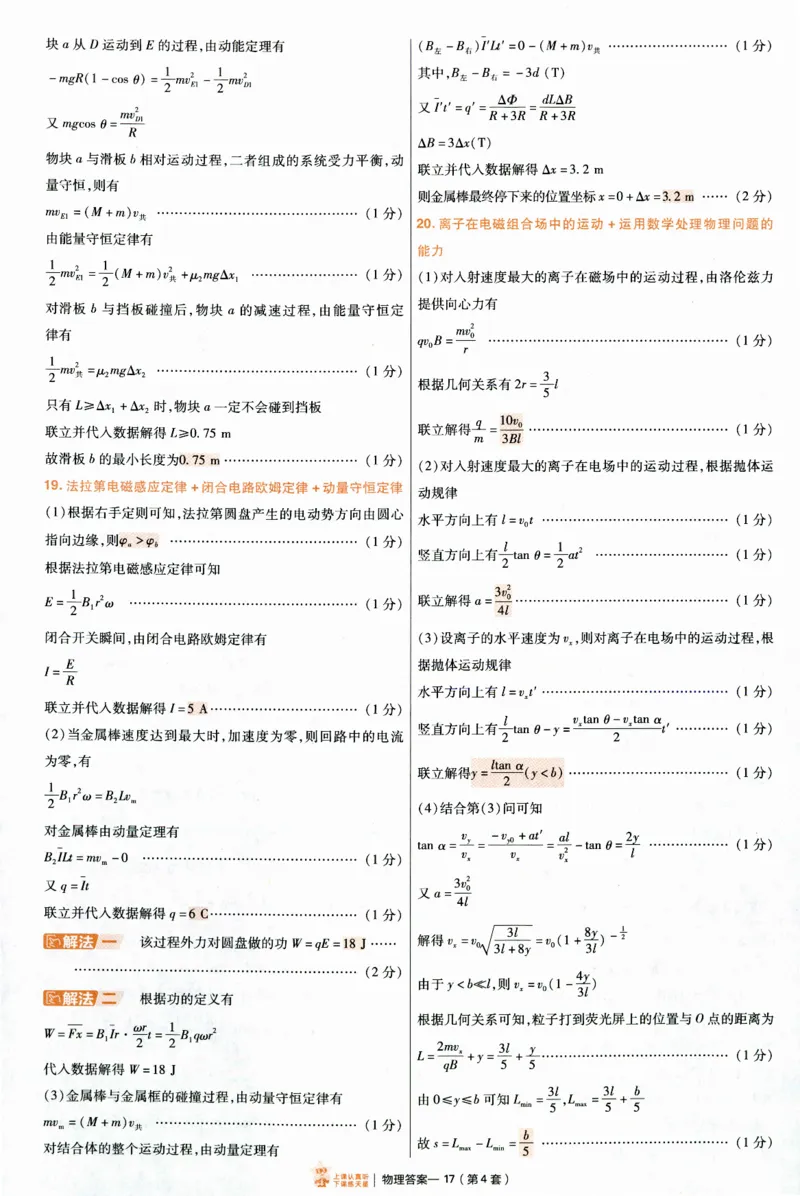 块 a 从 D 运动到 E 的过程,由动能定理有
-mgR(1 - cos θ) = \frac{1}{2}mv_{E1}^2 - \frac{1}{2}mv_{D1}^2
又 mgcos θ = \frac{mv_{D1}^2}{R}
物块 a 与滑板 b 相对运动过程,二者组成的系统受力平衡,动
量守恒,则有
mv_{E1} = (M + m)v_共 …… (1 分)
由能量守恒定律有
\frac{1}{2}mv_{E1}^2 = \frac{1}{2}(M + m)v_共^2 + μ_2mgΔx_1 …… (1 分)
对滑板 b 与挡板碰撞后,物块 a 的减速过程,由能量守恒定
律有
\frac{1}{2}mv_共^2 = μ_2mgΔx_2 …… (1 分)
只有 L≥Δx_1 + Δx_2 时,物块 a 一定不会碰到挡板
联立并代入数据解得 L≥0.75 m
故滑板 b 的最小长度为0.75 m …… (1 分)
19. 法拉第电磁感应定律 + 闭合电路欧姆定律 + 动量守恒定律
(1)根据右手定则可知,法拉第圆盘产生的电动势方向由圆心
指向边缘,则φ_a > φ_b …… (1 分)
根据法拉第电磁感应定律可知
E = \frac{1}{2}B_1r^2ω …… (1 分)
闭合开关瞬间,由闭合电路欧姆定律有
I = \frac{E}{R}
联立并代入数据解得 I = 5 A …… (1 分)
(2)当金属棒速度达到最大时,加速度为零,则回路中的电流
为零,有
\frac{1}{2}B_1r^2ω = B_2Lv_m
对金属棒由动量定理有
B_2\bar{I}Lt = mv_m - 0 …… (1 分)
又 q = \bar{I}t
联立并代入数据解得 q = 6 C …… (1 分)
解法一 该过程外力对圆盘做的功 W = qE = 18 J ……
…… (2 分)
解法二 根据功的定义有
W = \bar{F}x = B_1\bar{I}r · \frac{ωr}{2}t = \frac{1}{2}B_1qωr^2
代入数据解得 W = 18 J
(3)金属棒与金属框的碰撞过程,由动量守恒定律有
mv_m = (M + m)v_共 …… (1 分)
对结合体的整个运动过程,由动量定理有
(B_左 - B_右)\bar{I}'Lt' = 0 - (M + m)v_共 …… (1 分)
其中,B_左 - B_右 = -3d (T)
又 \bar{I}'t' = q' = \frac{ΔΦ}{R + 3R} = \frac{dLΔB}{R + 3R}
ΔB = 3Δx(T)
联立并代入数据解得 Δx = 3.2 m
则金属棒最终停下来的位置坐标 x = 0 + Δx = 3.2 m …… (2 分)
20. 离子在电磁组合场中的运动 + 运用数学处理物理问题的
能力
(1)对入射速度最大的离子在磁场中的运动过程,由洛伦兹力
提供向心力有
qv_0B = \frac{mv_0^2}{r} …… (1 分)
根据几何关系有 2r = \frac{3}{5}l
联立解得 \frac{q}{m} = \frac{10v_0}{3Bl} …… (1 分)
(2)对入射速度最大的离子在电场中的运动过程,根据抛体运
动规律
水平方向上有 l = v_0t …… (1 分)
竖直方向上有 \frac{l}{2}tan θ = \frac{1}{2}at^2 …… (1 分)
联立解得 a = \frac{3v_0^2}{4l} …… (1 分)
(3)设离子的水平速度为 v_x,则对离子在电场中的运动过程,根
据抛体运动规律
水平方向上有 l = v_xt' …… (1 分)
竖直方向上有 \frac{l}{2}tan θ - y = \frac{v_xtan θ - v_xtan α}{2}t' …… (1 分)
联立解得y = \frac{ltan α}{2}(y < b) …… (1 分)
(4)结合第(3)问可知
tan α = \frac{v_y}{v_x} = \frac{-v_{y0} + at'}{v_x} = \frac{al}{v_x^2} - tan θ = \frac{2y}{l} …… (1 分)
又 a = \frac{3v_0^2}{4l}
解得 v_x = v_0\sqrt{\frac{3l}{3l + 8y}} = v_0(1 + \frac{8y}{3l})^{-\frac{1}{2}}
由于 y < b≪l,则 v_x = v_0(1 - \frac{4y}{3l})
根据几何关系可知,粒子打到荧光屏上的位置与 O 点的距离为
L = \frac{2mv_x}{qB} + y = \frac{3l}{5} + \frac{y}{5} …… (1 分)
由 0≤y≤b 可知 L_{min} = \frac{3l}{5}, L_{max} = \frac{3l}{5} + \frac{b}{5}
故 s = L_{max} - L_{min} = \frac{b}{5} …… (1 分)
上课认真听
下课练天星
物理答案— 17 (第 4 套)